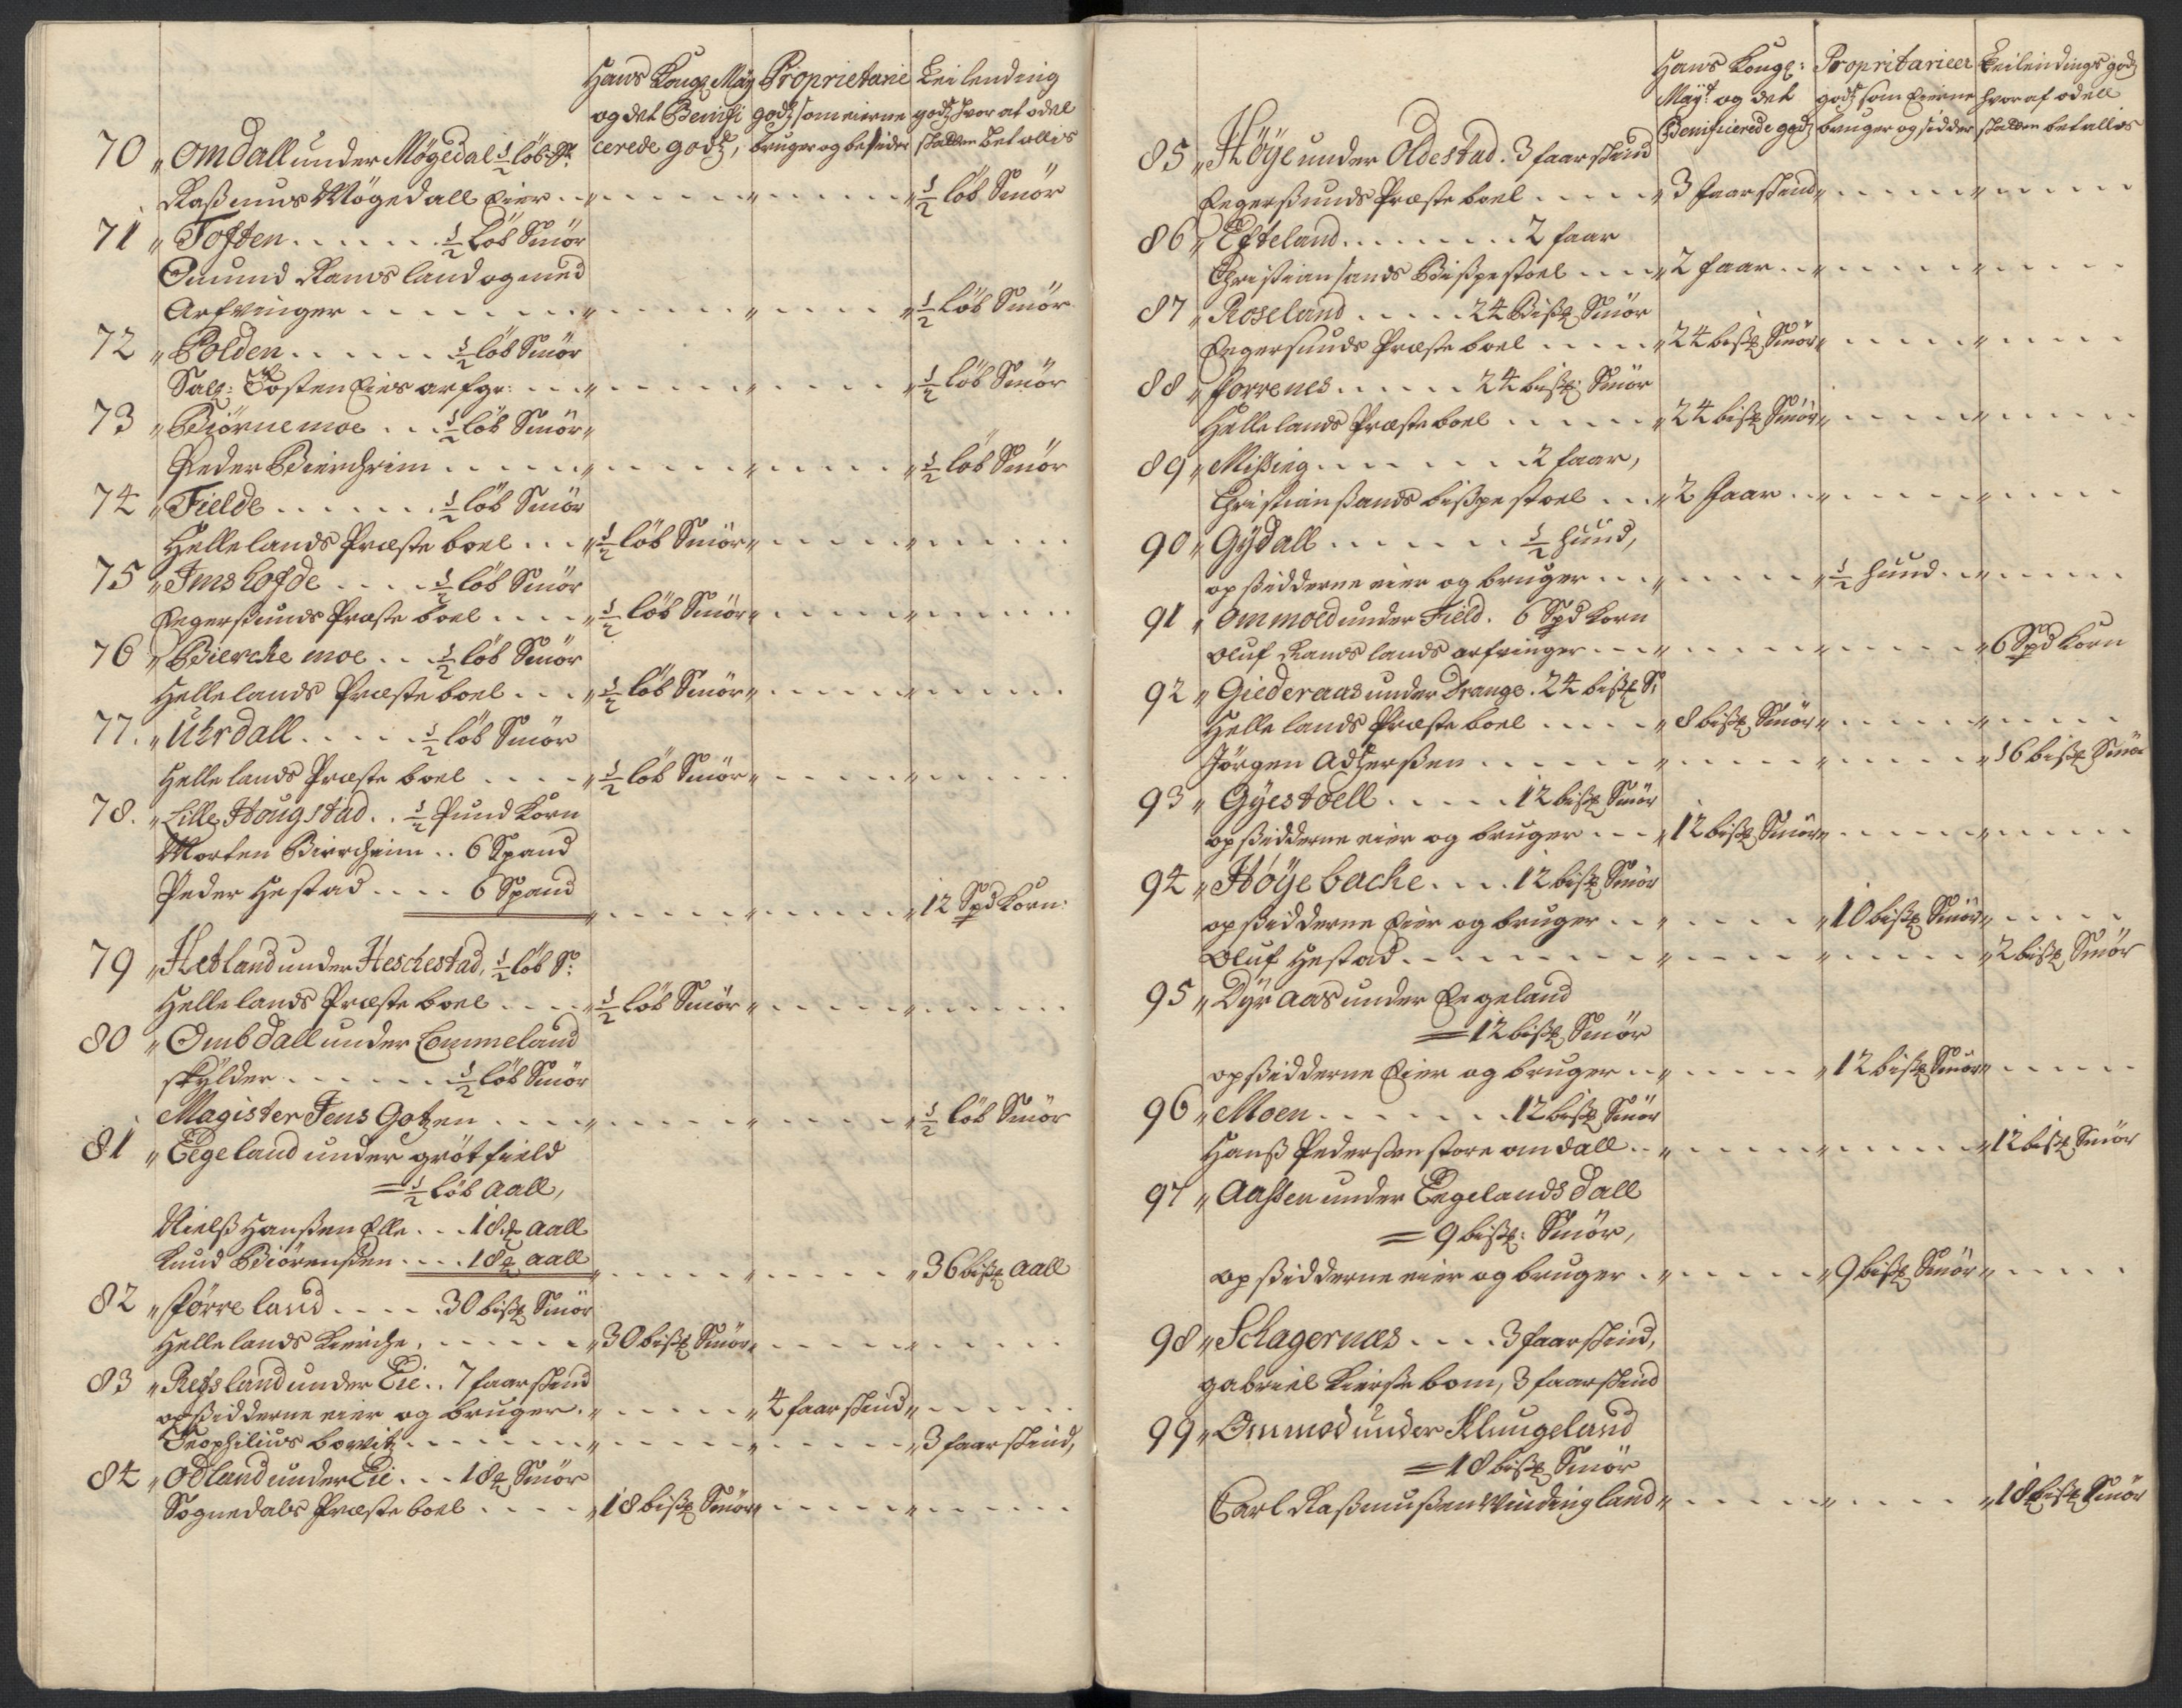 Hans Kongl May og det Benifi cerede godtz,
Proprietarie godtz som eierne bruger og besider
Leilending godtz hvor af odel skatten betallis
70 „ Omdall under Møgedal ½ löb Sr.
Rasmus Møgedall Eier „ „ „ ½ löb Smör
71 „ Toften ½ löb Smör
Omund Rams land og med
Arfvinger „ „ „ ½ löb Smör
72 „ Polden ½ löb Smör
Salg: Tosten Eies arfgr: „ „ „ ½ löb Smör
73 „ Biörnemoe ½ löb Smör „
Peder Bierchrim „ „ „ ½ löb Smör
74 „ Fielde ½ löb Smör
Hellelands Præste boel „ ½ löb Smör „ „
75 „ Jmslofde ½ löb Smör
Eegersunds Præste boel „ ½ löb Smör „ „
76 „ Bierche moe ½ löb Smör
Hellelands Præste boel „ ½ löb Smör „ „
77. „ Uhrdall ½ löb Smör
Hellelands Præste boel „ ½ löb Smör „ „
78. „ Lille Hougstad ½ Pund Korn
Morten Bierchrim 6 Spand
Peder Hestad 6 Spand
„ „ „ 12 Spd Korn:
79 „ Hetland under Heschestad, ½ löb Sr:
Hellelands Præste boel „ ½ löb Smör „ „
80 „ Ombdall under Lommeland
skylder ½ löb Smör
Magister Jens Gotzen „ „ „ ½ löb Smör
81 „ Eegeland under grötfield
= ½ löb Aall,
Nielß Hanßen Elle 18 ℔ Aall
Knud Biörenßen 18 ℔ Aall
„ „ „ 36 biß℔ Aall
82 „ Förreland 30 biß℔ Smör
Hellelands Kierche, „ 30 biß℔ Smör „ „
83 „ Refsland under Eie 7 faarskind
opsidderne eier og bruger „ „ 4 faarskind „
Teophilius bowitz „ „ „ 3 faarskind,
84 „ Odland under Eie 18 ℔ Smör
Sognedals Præste boel „ 18 biß℔ Smör „ „

Hans Kongl: Mayt og det Benificierede godtz
Propritarieer godtz som Eierne bruger og sidder
Leilendings godtz hvor af odell skatten betallis
85 „ Höÿe under Oldestad. 3 faarskind
Eegersunds Præste boel „ 3 faarskind „ „
86 „ Efteland 2 faar
Christiansands Bißpestoel „ 2 faar „ „
87 „ Roseland 24 Biß℔ Smör
Eegersunds Præste boel „ 24 biß℔ Smör „ „
88 „ forrenes 24 biß℔ Smör
Hellelands Præste boel „ 24 biß℔ Smör „ „
89 „ Mißing 2 faar,
Christiansands bißpestoel „ 2 faar „ „
90 „ Gÿdall ½ hund,
opsidderne eier og bruger „ „ ½ hund „
91 „ Ommoed under Field. 6 Spd Korn
Oluf Rams lands arfvinger „ „ „ 6 Spd Korn
92 „ Giederaas under Drange. 24 biß℔ Sr
Hellelands Præste boel „ 8 biß℔ Smör „ „
Jörgen Adserßen „ „ „ 16 biß℔ Smör
93 „ Gÿestoell 12 biß℔ Smör
opsidderne eier og bruger „ 12 biß℔ Smör „ „
94 „ Höÿebacke 12 biß℔ Smör
opsidderne Eier og bruger „ „ 10 biß℔ Smör „
Oluf Hestad „ „ „ 2 biß℔ Smör
95 „ Dÿr aas under Eegeland
= 12 biß℔ Smör
opsidderne Eier og bruger „ „ 12 biß℔ Smör „
96 „ Moen 12 biß℔ Smör
Hanß Pederßen store omdall „ „ „ 12 biß℔ Smör
97 „ Aaßen under Eegelandsdall
= 9 biß℔: Smör,
opsidderne eier og bruger „ „ 9 biß℔ Smör „
98 „ Schagernæs 3 faarskind,
gabriel Kierstebom, 3 faarskind
99 „ Ommod under Klungeland
= 18 biß℔ Smör
Carl Rasmußen Windingland „ „ „ 18 biß℔ Smör